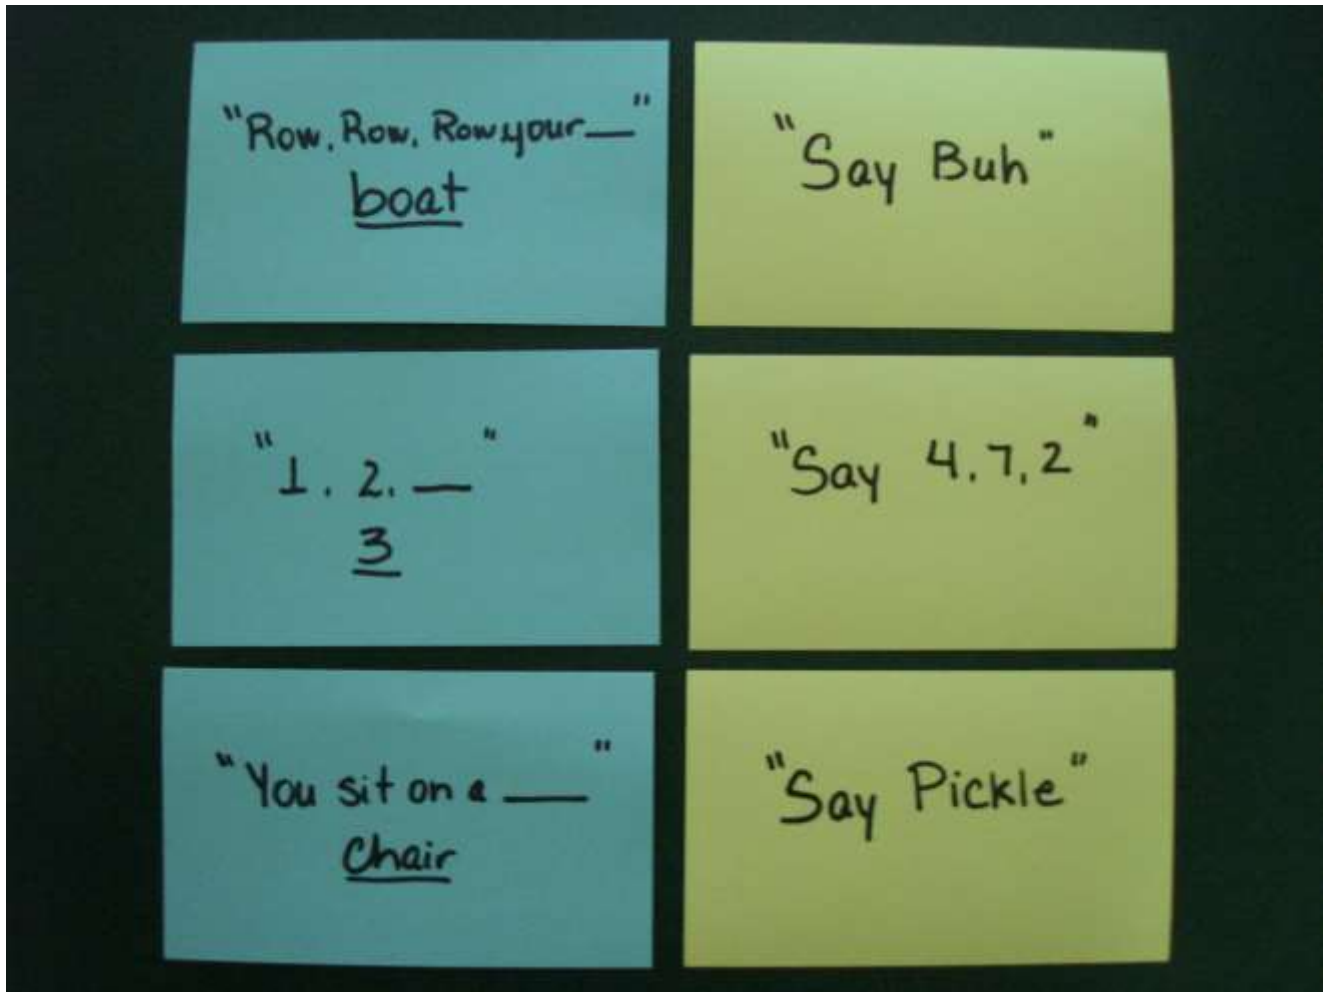 "Row, Row, Row your __"
boat
"Say Buh"
"1, 2, __"
3
"Say 4, 7, 2"
"You sit on a __"
chair
"Say Pickle"